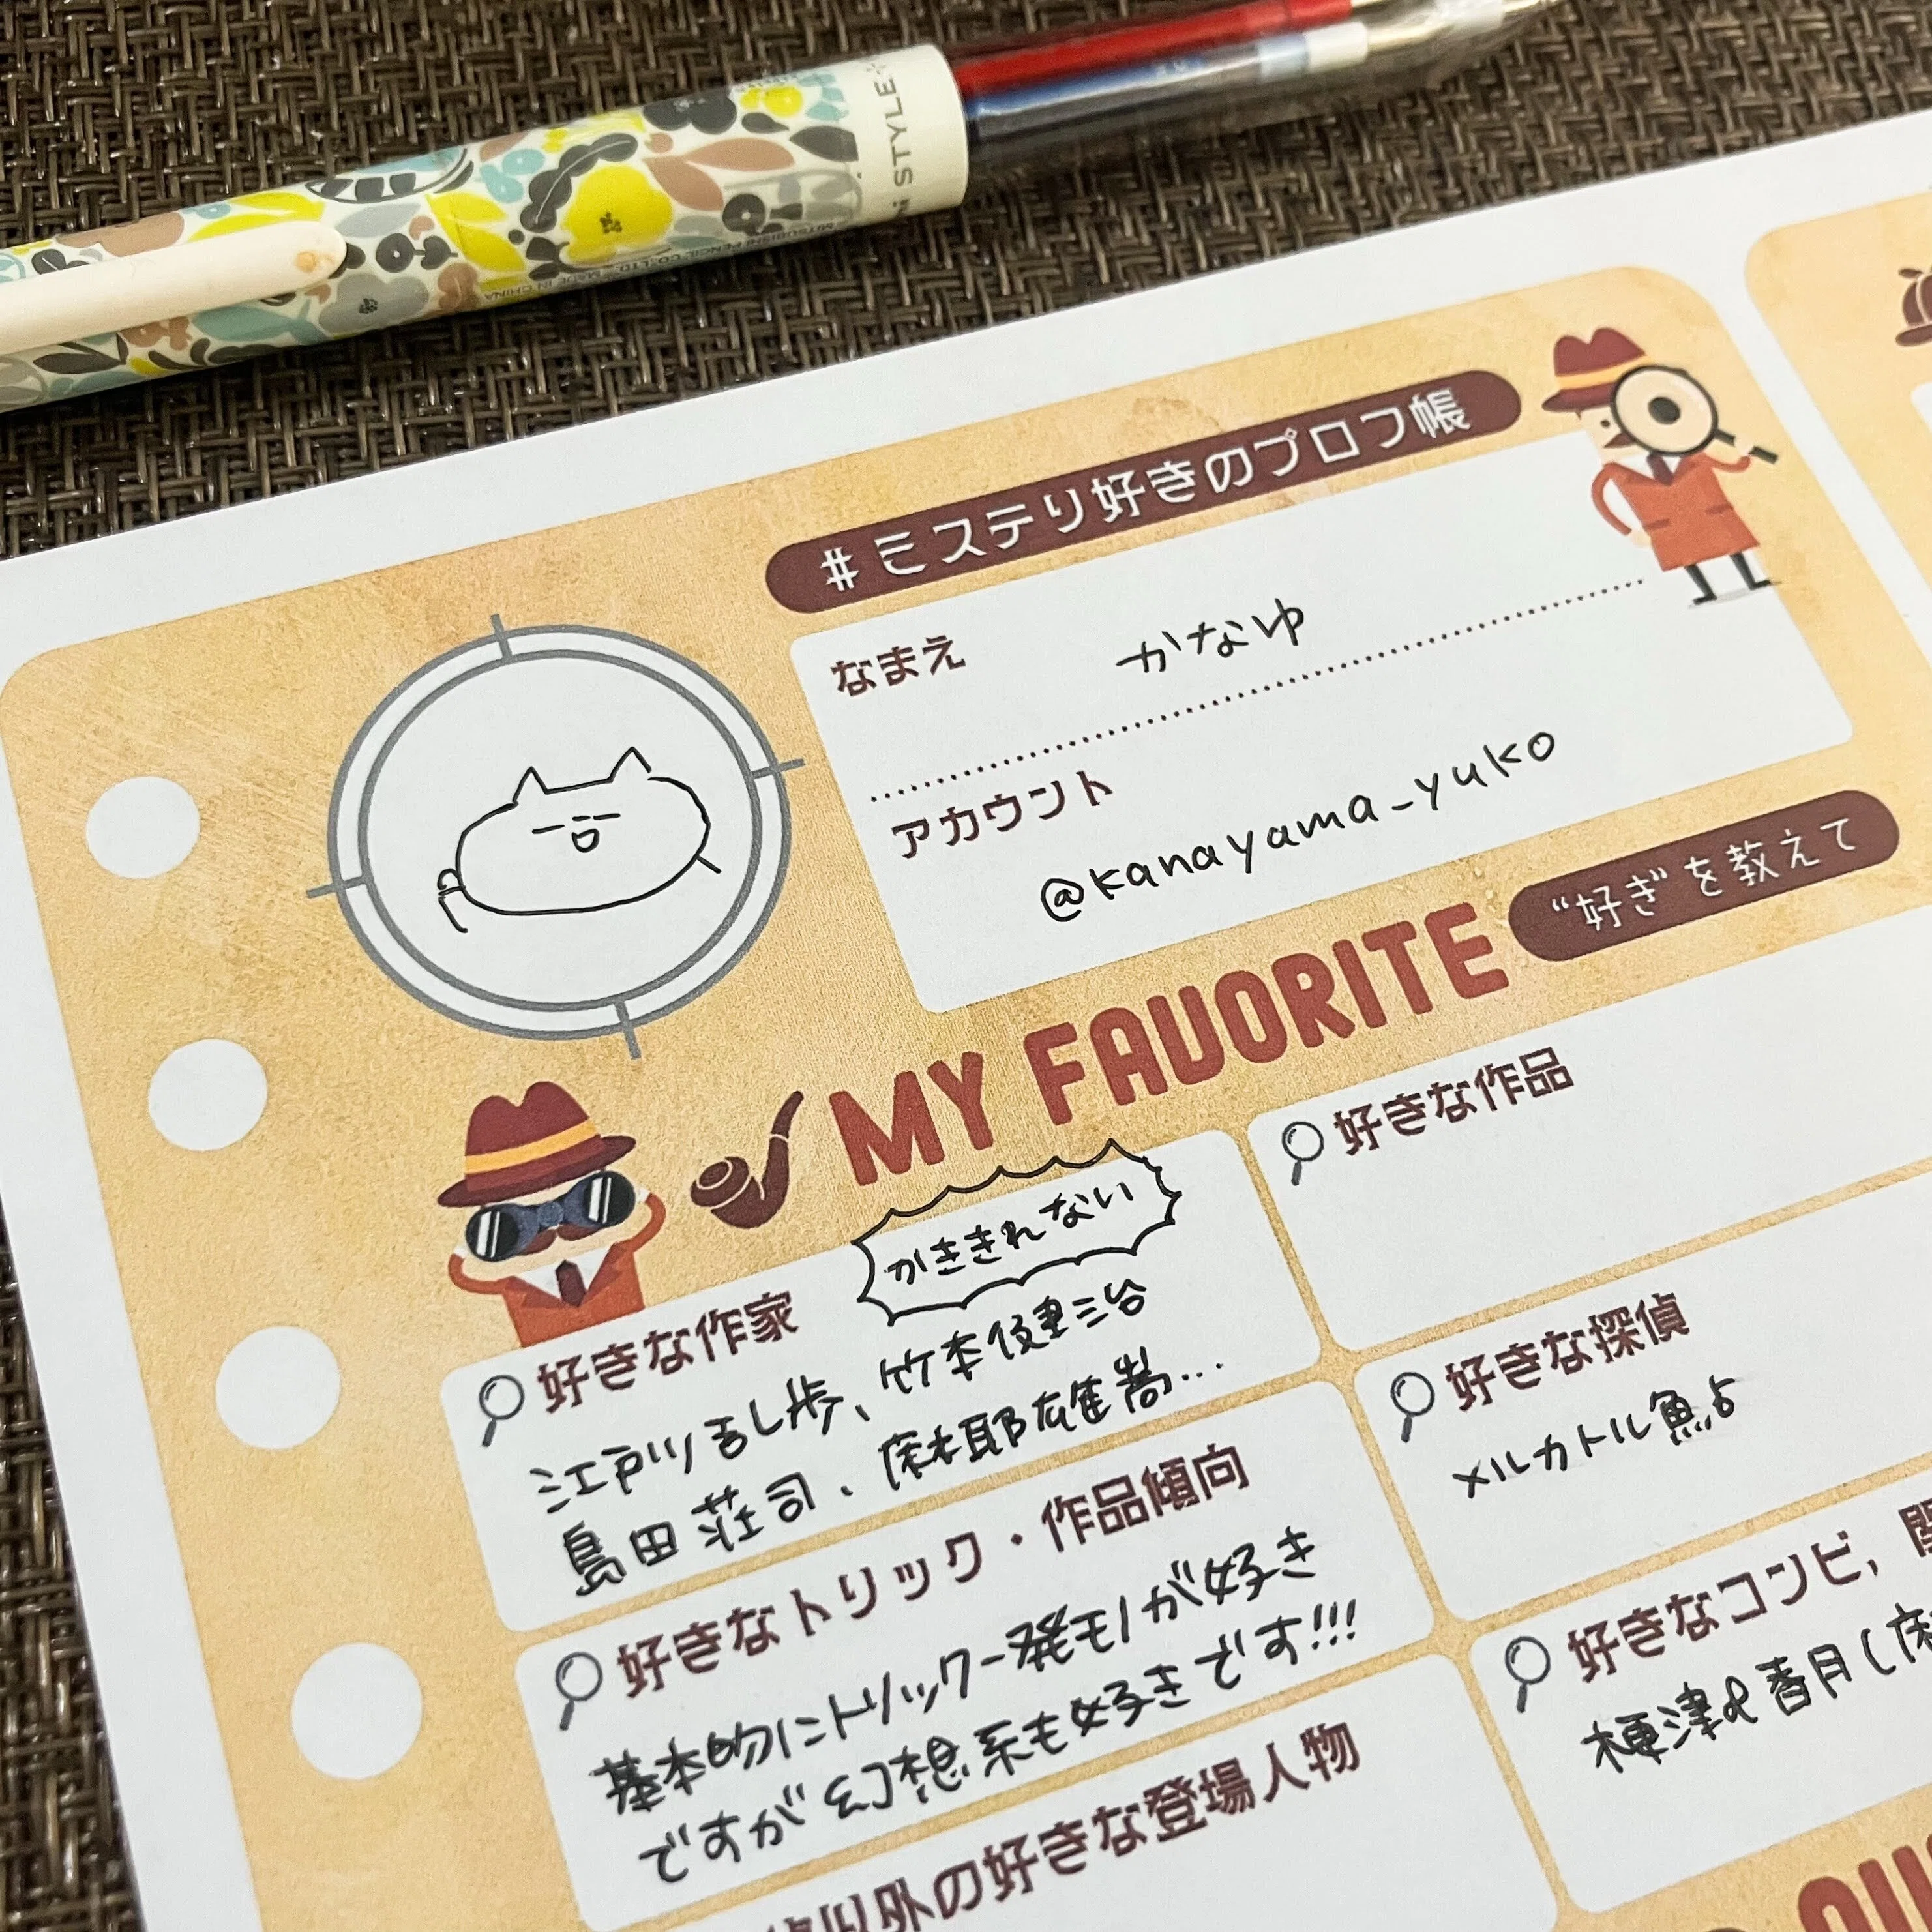 STYLE
MITSUBISHI PENCIL CO., LTD. MADE IN CHINA
#ミステリ好きのプロフ帳
なまえ かなゆ
アカウント
@kanayama_yuko
MY FAVORITE
"好き"を教えて
かききれない
好きな作家
江戸川乱歩、竹本健治
島田荘司、麻耶雄嵩...
好きな作品
好きな探偵
メルカトル鮎
好きなトリック・作品傾向
基本的にトリック一発モノが好き
ですが幻想系も好きです!!!
好きなコンビ,
香月
以外の好きな登場人物